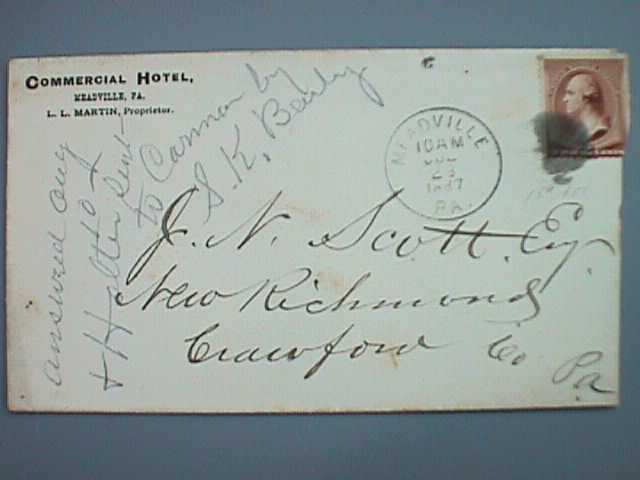 COMMERCIAL HOTEL,
MEADVILLE, PA.
L. L. MARTIN, Proprietor.
MEADVILLE
10AM
23
1887
PA.
J. N. Scott Esq.
New Richmond
Crawford Co Pa
answered aug
& Halter sent
to Cannon by
S. K.